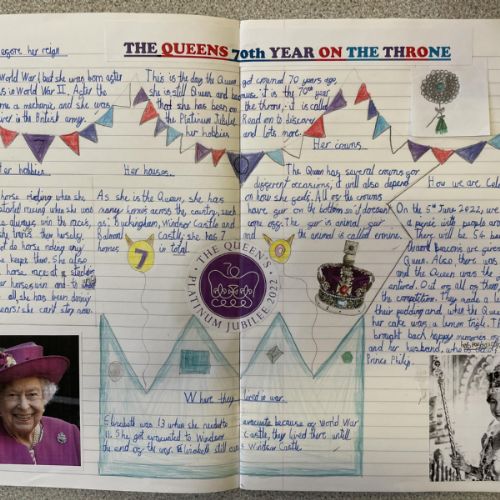 THE QUEENS 70th YEAR ON THE THRONE
before her reign
World War I but she was born after
in World War II. After the
a mechanic and she was
driver in the British army.
This is the day the Queen got crowned 70 years ago,
she is still Queen and because it is the 70th year
that she has been on the throne, it is called
the Platinum Jubilee. Read on to discover
her hobbies and lots more.
Her hobbies.
horse riding when she
started racing when she was
always won the races,
she trains them
do horse riding any
keeps them. She also
horse race at a
horses win and to
all she has been doing
years! She can't stop now.
Her houses.
As she is the Queen, she has
many homes across the country, such
as: Buckingham, Windsor Castle and
Balmoral Castle; she has 7
homes in total.
70
THE QUEEN'S
PLATINUM JUBILEE 2022
Her crowns.
The Queen has several crowns for
different occasions, it will also depend
on how she feels. All of the crowns
have fur on the bottom so it doesn't
come off. The fur is animal fur
and the animal is called ermine.
How we are
On the 5th June 2022, we
a picnic with people around
There will be 54
beacons are
Queen. Also there was
and the Queen was the
entered. Out of all of them
the competition. They made a
their pudding and, what the Queen
her cake was a lemon trifle. Th
brought back happy memories of
and her husband, who is
Prince Philip.
Where they lived in war.
Elizabeth was 13 when she needed to evacuate because of World War
II. She got evacuated to Windsor Castle, they lived there until
the end of the war. Elizabeth still Windsor Castle.